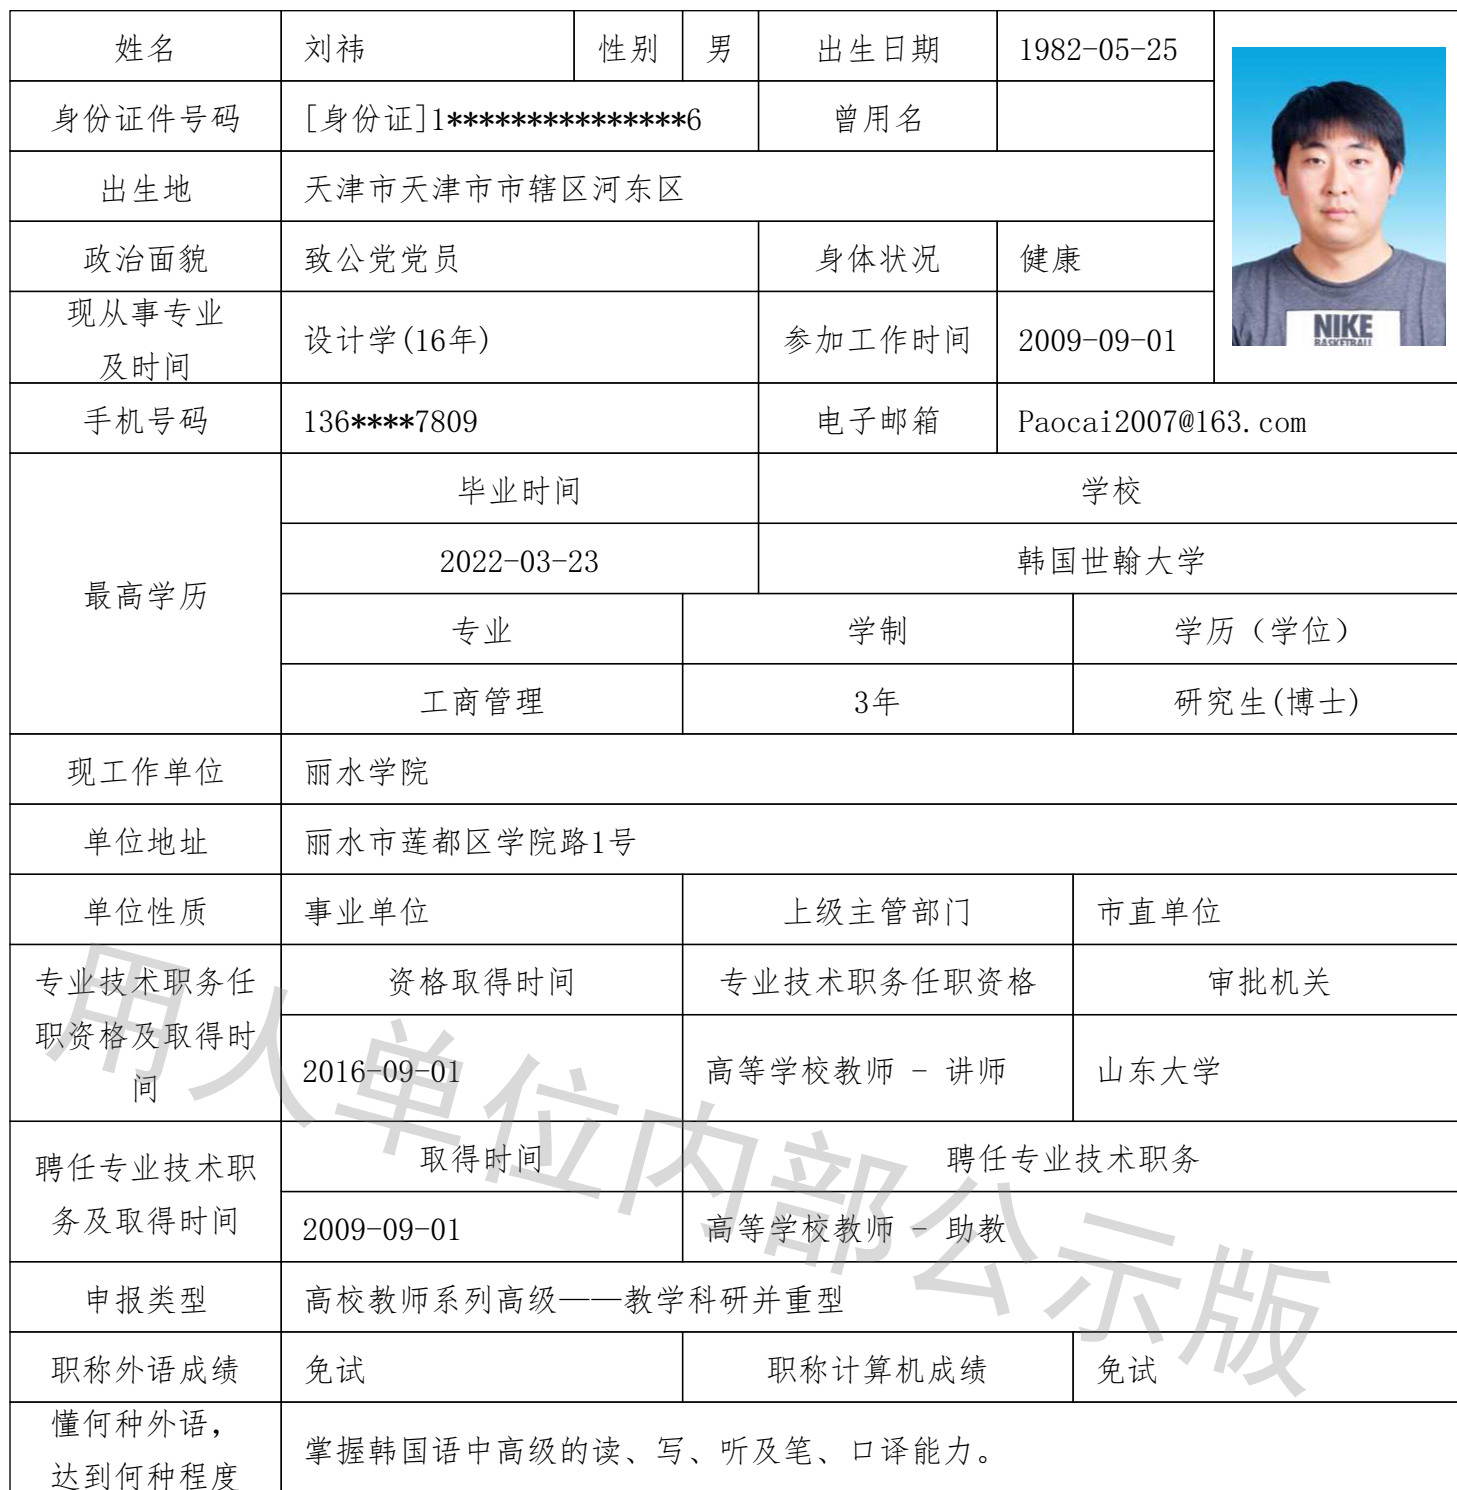 姓名 刘祎 性别 男 出生日期 1982-05-25
身份证件号码 [身份证]1***************6 曾用名
出生地 天津市天津市市辖区河东区
政治面貌 致公党党员 身体状况 健康
现从事专业
及时间
设计学(16年) 参加工作时间 2009-09-01
NIKE
BASKETBALL
手机号码 136****7809 电子邮箱 Paocai2007@163.com
最高学历
毕业时间 学校
2022-03-23 韩国世翰大学
专业 学制 学历（学位）
工商管理 3年 研究生(博士)
现工作单位 丽水学院
单位地址 丽水市莲都区学院路1号
单位性质 事业单位 上级主管部门 市直单位
专业技术职务任
职资格及取得时
间
资格取得时间 专业技术职务任职资格 审批机关
2016-09-01 高等学校教师 - 讲师 山东大学
聘任专业技术职
务及取得时间
取得时间 聘任专业技术职务
2009-09-01 高等学校教师 - 助教
申报类型 高校教师系列高级——教学科研并重型
职称外语成绩 免试 职称计算机成绩 免试
懂何种外语，
达到何种程度
掌握韩国语中高级的读、写、听及笔、口译能力。
用人单位内部公示版